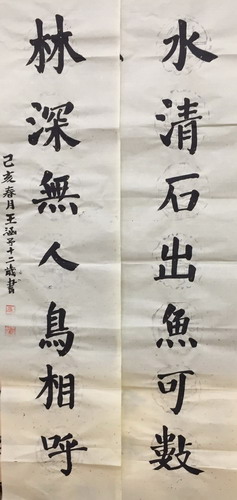 水清石出魚可數
林深無人鳥相呼
己亥春月王涵予十二歲書